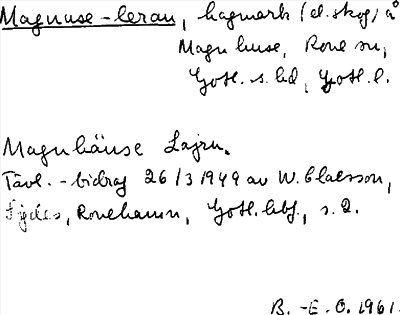 Magnuse-lerau, hagmark (el. skog) å
Magnhuse, Rone sn,
Gotl. s. hd, Gotl. l.
Magnhäuse Lajru.
Tävl.-bidrag 26/3 1949 av W. Claesson,
Ronehamn, Gotl. lbf., s. 2.
B.-E. O. 1961.